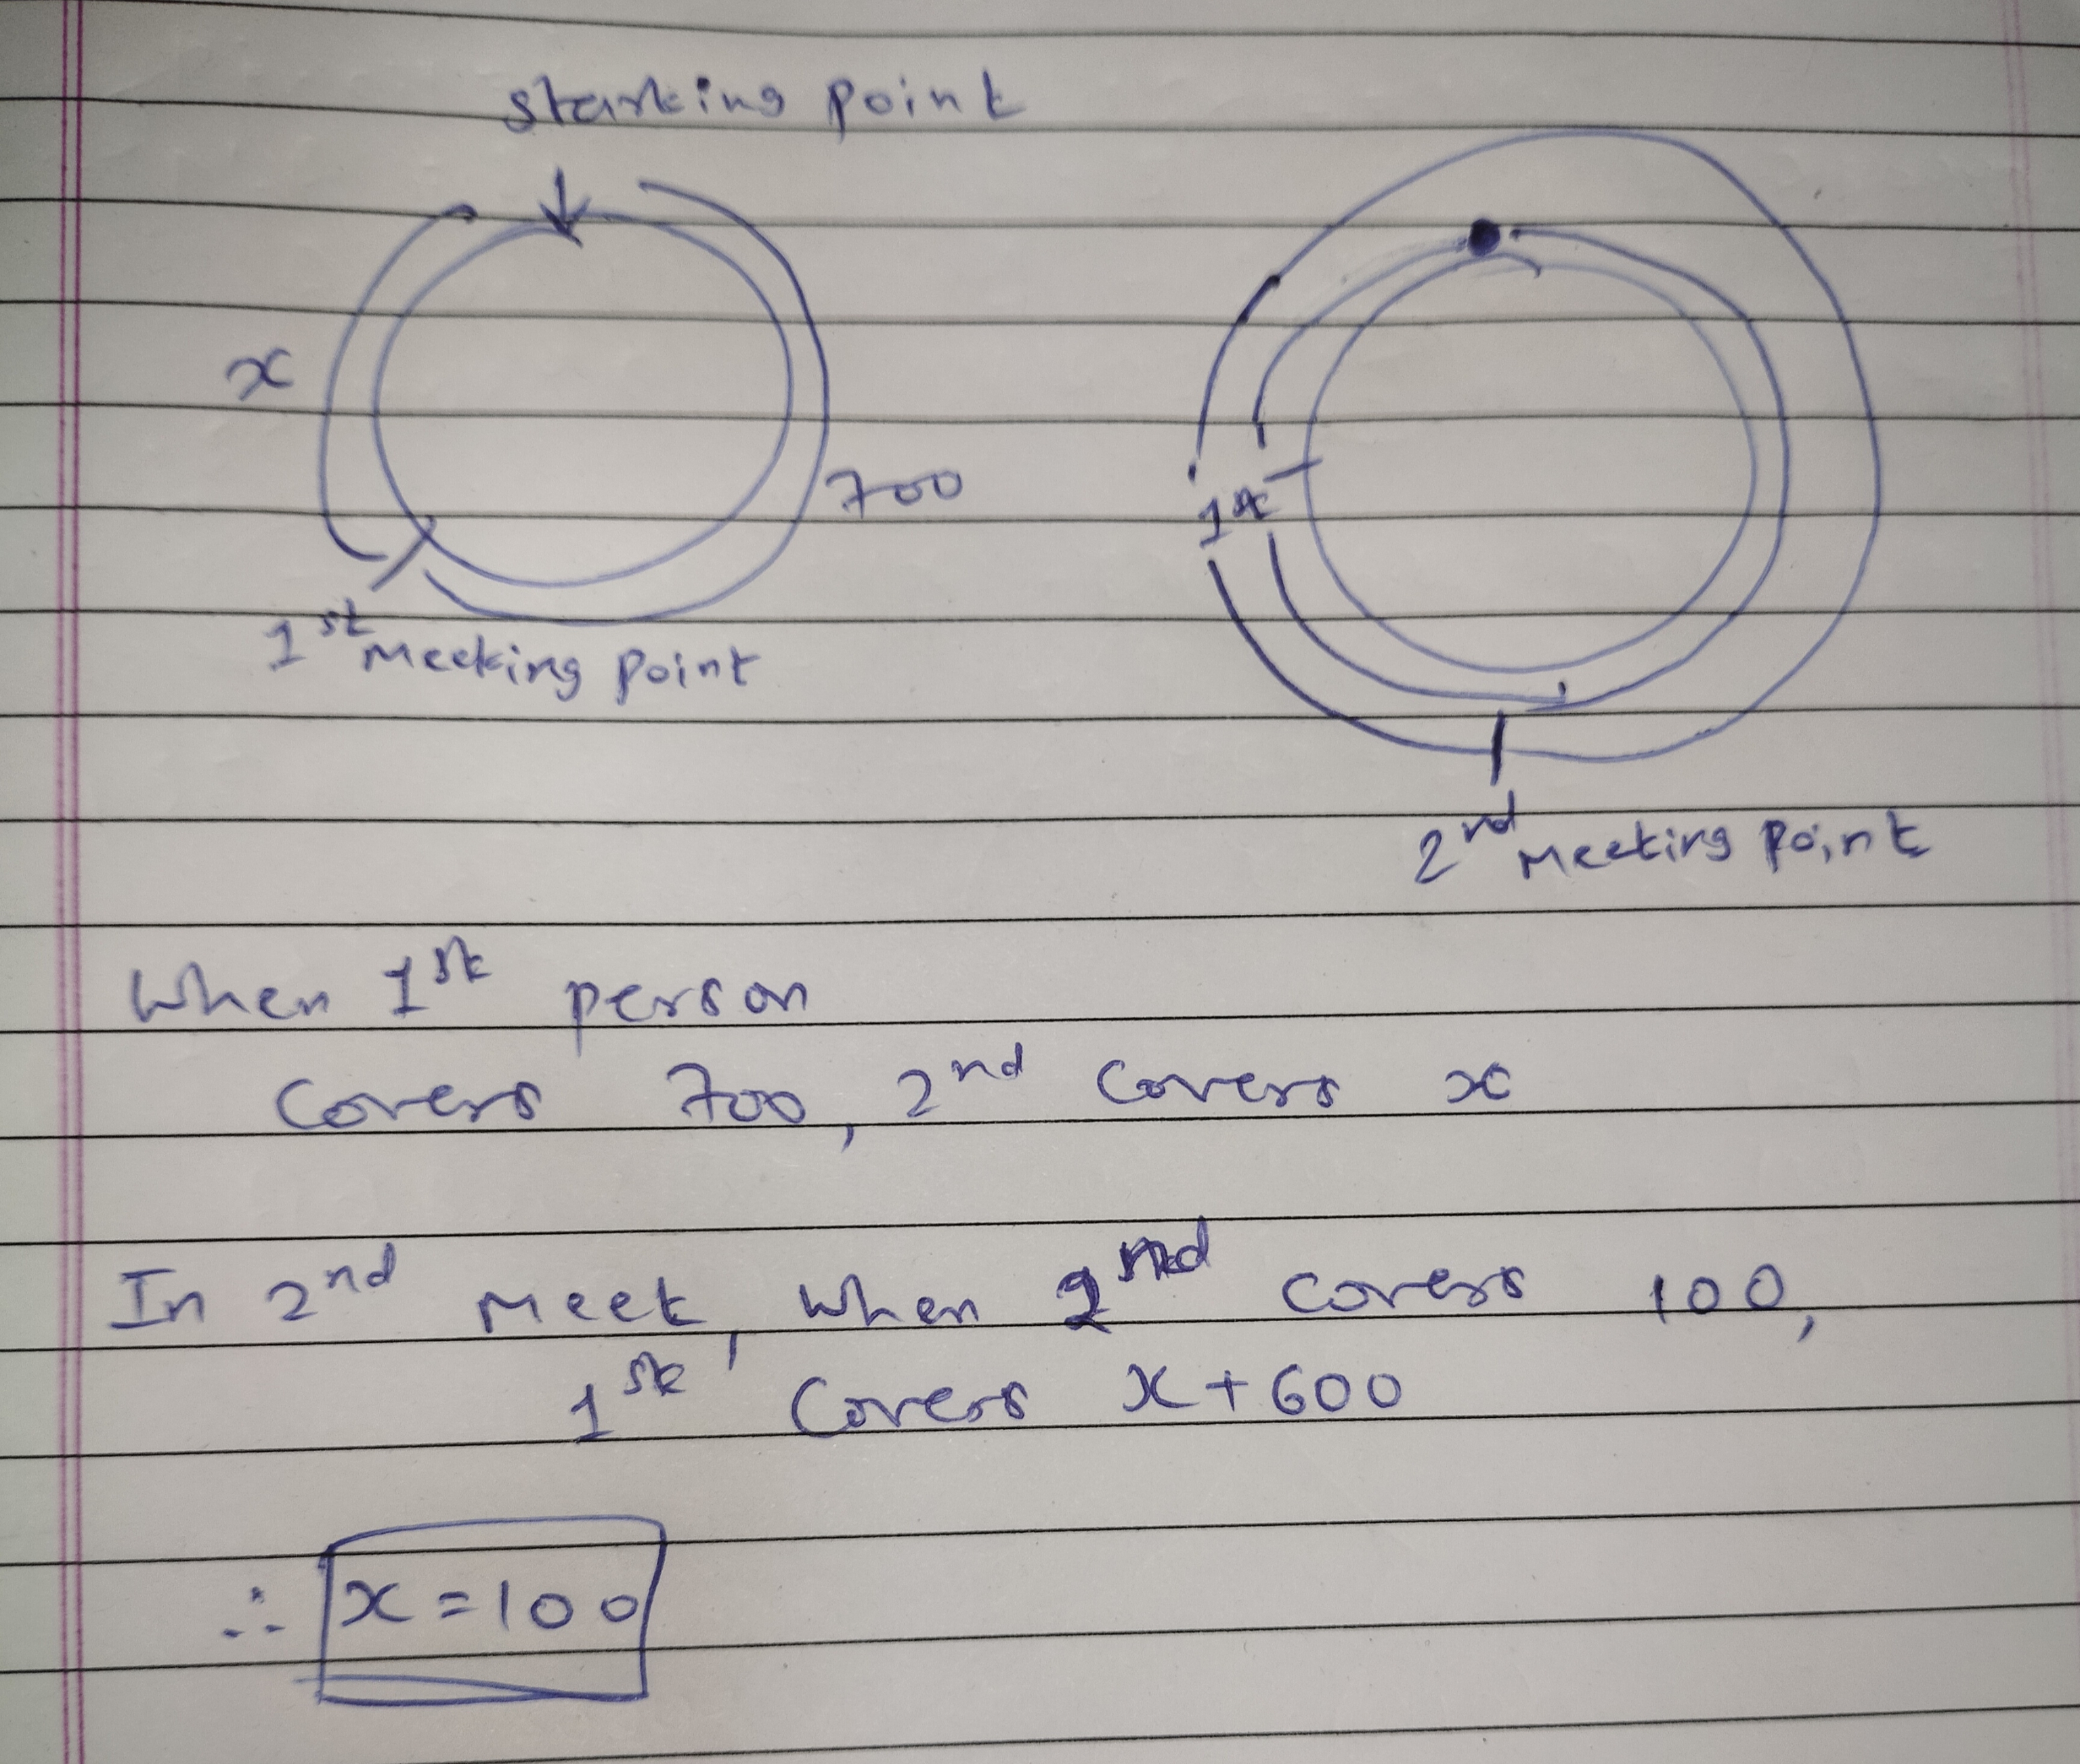 starting point
x
700
1st Meeting point
1st
2nd Meeting point
When 1st person
covers 700, 2nd covers x
In 2nd Meet, when 2nd covers 100,
1st covers x + 600
∴ x = 100